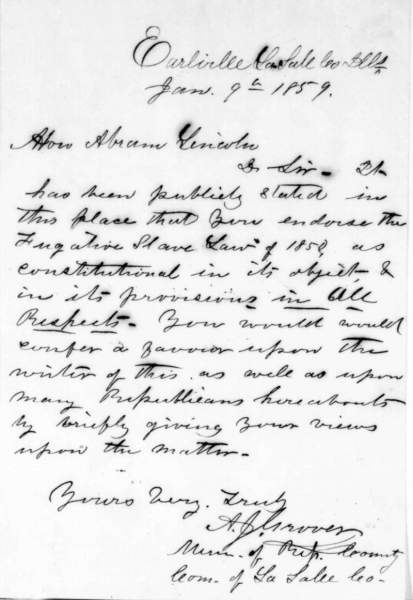 Earlville La Salle Co Ills
Jan. 9th 1859.
Hon Abram Lincoln
Dr Sir - It
has been publicly stated in
this place that you endorse the
Fugative Slave Law of 1850, as
constitutional in its object, &
in its provisions in all
Respects - You would would
confer a favour upon the
writer of this as well as upon
many Republicans hereabouts
by briefly giving your views
upon the matter -
Yours Very Truly
A. J. Grover
Mem. of Rep. County
Com. of La Salle Co -